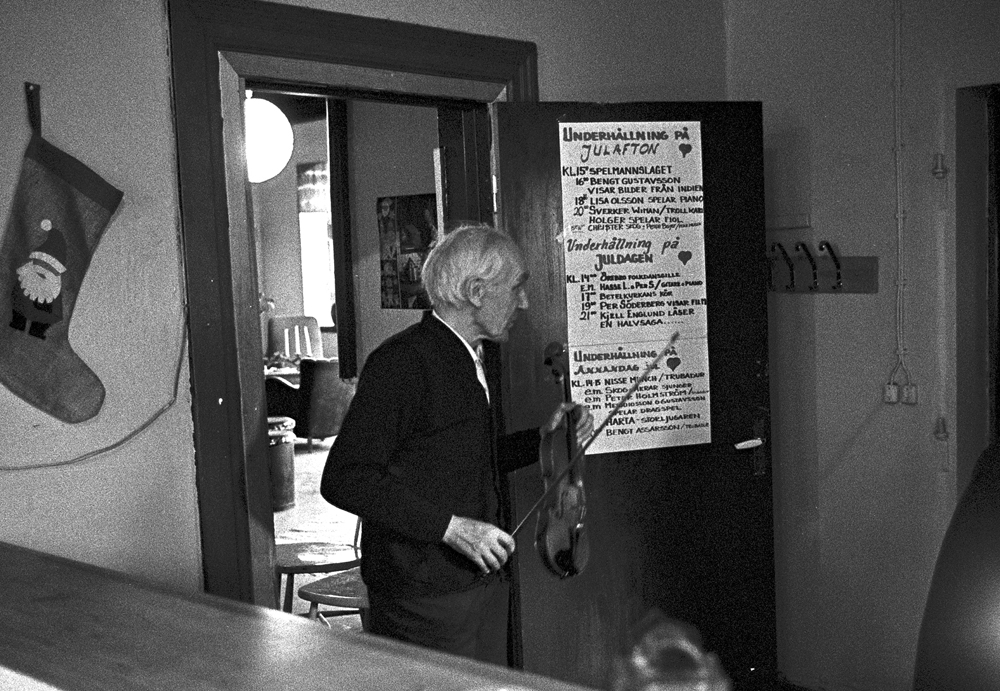 UNDERHÅLLNING PÅ
JULAFTON
KL.15⁰⁰ SPELMANNSLAGET
16⁰⁰ BENGT GUSTAVSSON
VISAR BILDER FRÅN INDIEN
18⁰⁰ LISA OLSSON SPELAR PIANO
20⁰⁰ SVERKER WIMAN/TROLLKARL
HOLGER SPELAR FIOL
CHRISTER SKOG
Underhållning på
JULDAGEN
KL.14⁰⁰ ÖREBRO FOLKDANSGILLE
E.M. HASSE L. o PER S/GITARR o PIANO
17⁰⁰ BETELKYRKANS KÖR
19⁰⁰ PER SÖDERBERG VISAR FILM
21⁰⁰ KJELL ENGLUND LÄSER
EN HALVSAGA......
UNDERHÅLLNING PÅ
ANNANDAG JUL
KL.14-15 NISSE MÜNCH/TRUBADUR
e.m. SJUNGER
e.m PETER HOLMSTRÖM/
e.m O GUSTAVSSON
SPELAR DRAGSPEL
HARTA-STORLJUGAREN
BENGT ASSARSSON/TRUBADUR